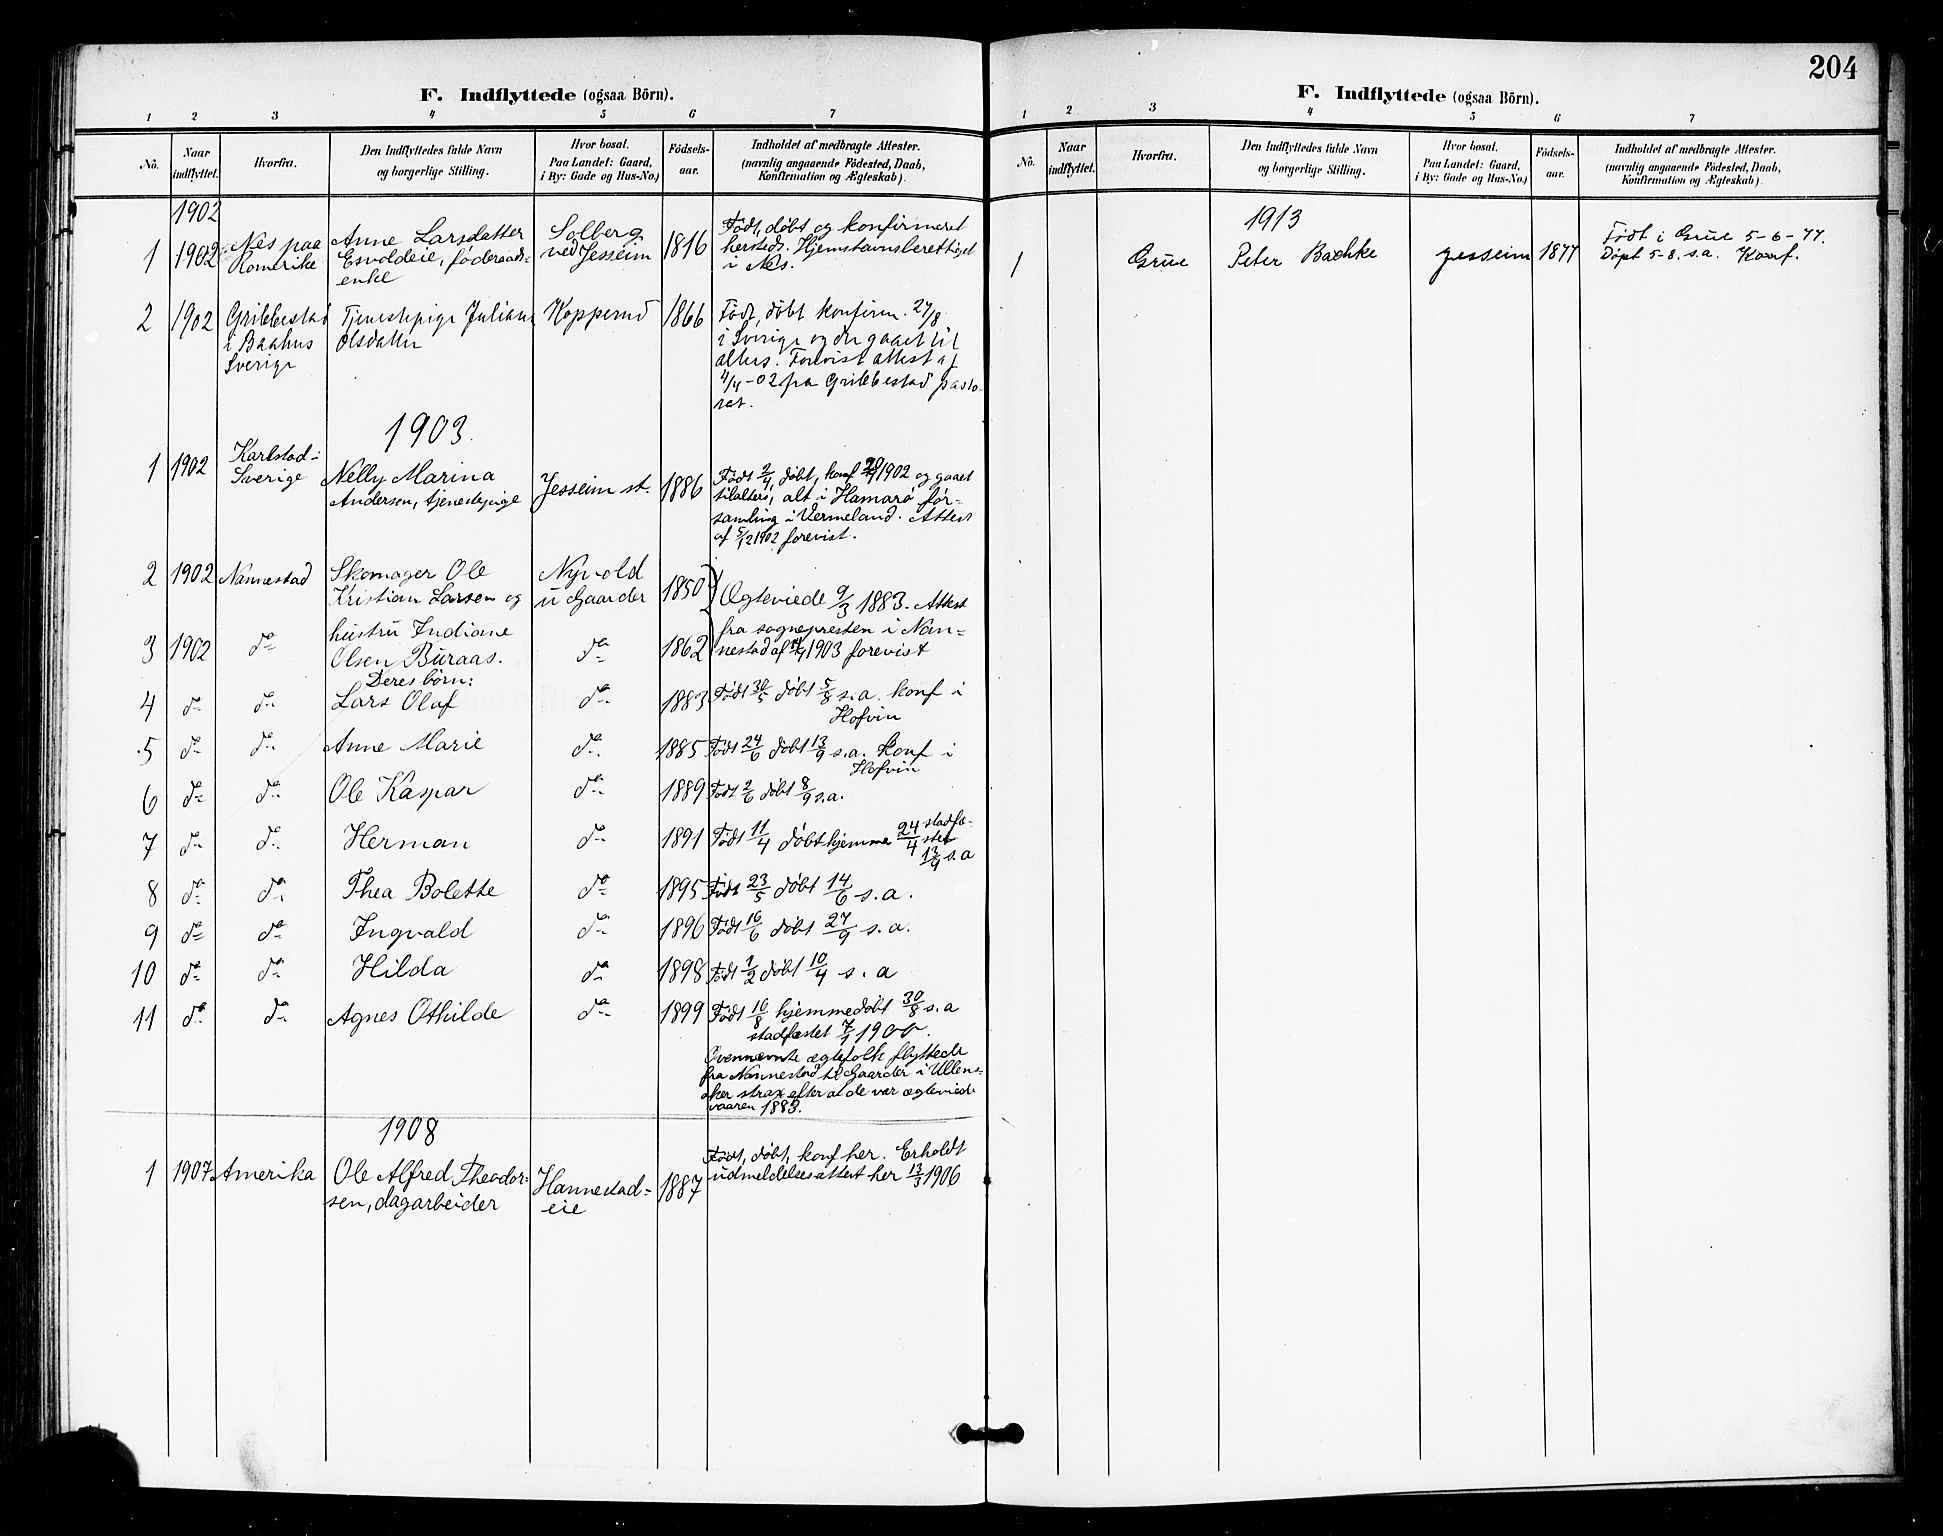 F. Indflyttede (ogsaa Börn).
1 2 3 4 5 6 7
No. Naar indflyttet. Hvorfra. Den Indflyttedes fulde Navn og borgerlige Stilling. Hvor bosat. Paa Landet: Gaard, i By: Gade og Hus-No.) Födsels-aar. Indholdet af medbragte Attester. (navnlig angaaende Födested, Daab, Konfirmation og Ægteskab).
1902
1 1902 Nes paa Romerike Anne Larsdatter Esvoldeie, føderaads-enke Solberg ved Jesseim 1816 Født, døbt og konfirmeret hersteds. Hjemstavnsberettiget i Nes.
2 1902 Grilbbestad i Baahus Sverige Tjenestepige Juliane Olsdatter Kopperud 1866 Født, døbt konfirm. 27/8 i Sverige og der gaaet til alters. Forevist attest af 4/4-02 fra Grilbbestad pasto-rat.
1903.
1 1902 Karlstad i Sverige Nelly Marina Andersen, tjenestepige Jesseim st. 1886 Født 2/4, døbt, konf 1902 og gaaet tilalters, alt i Hamarö för-samling i Vermeland. Attest af 5/12 1902 forevist.
2 1902 Nannestad Skomager Ole Kristian Larsen og Nyvold u Gaarder 1850 Ægteviede 9/3 1883. Attest
3 1902 do hustru Indiane Olsen Buraas. do 1862 fra sognepresten i Nan-nestad af 1903 forevist
Deres børn:
4 do do Lars Olaf do 1883 Født 30/5 døbt 5/8 s.a. konf i Hofvin
5 do do Anne Marie do 1885 Født 24/6 døbt 13/9 s.a. konf i Hofvin
6 do do Ole Kaspar do 1889 Født 2/6 døbt 8/9 s.a.
7 do do Herman do 1891 Født 11/4 døbt hjemme 24/4 stadfæ-stet 13/9 s.a
8 do do Thea Bolette do 1895 Født 23/5 døbt 14/6 s.a.
9 do do Ingvald do 1896 Født 16/6 døbt 27/9 s.a.
10 do do Hilda do 1898 Født 1/2 døbt 10/4 s.a
11 do do Agnes Othilde do 1899 Født 16/8 hjemmedøbt 30/8 s.a stadfæstet 7/1 1900.
Ovennævnte ægtefolk flyttede
fra Nannestad til Gaarder i Ullens-
aker strax efter at de var ægteviede
vaaren 1883.
1908
1 1907 Amerika Ole Alfred Theodor-sen, dagarbeider Hannestad-eie 1887 Født, døbt, konf her. Erholdt udmeldelsesattest her 13/3 1906
204
F. Indflyttede (ogsaa Börn).
1 2 3 4 5 6 7
No. Naar indflyttet. Hvorfra. Den Indflyttedes fulde Navn og borgerlige Stilling. Hvor bosat. Paa Landet: Gaard, i By: Gade og Hus-No.) Födsels-aar. Indholdet af medbragte Attester. (navnlig angaaende Födested, Daab, Konfirmation og Ægteskab).
1913
1 Grue Peter Bachke Jesseim 1877 Født i Grue 5-6-77. Døpt 5-8. s.a. Konf.